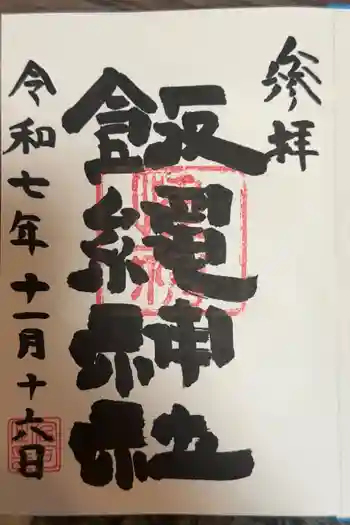 参拝
飯縄神社
令和七年十一月十六日